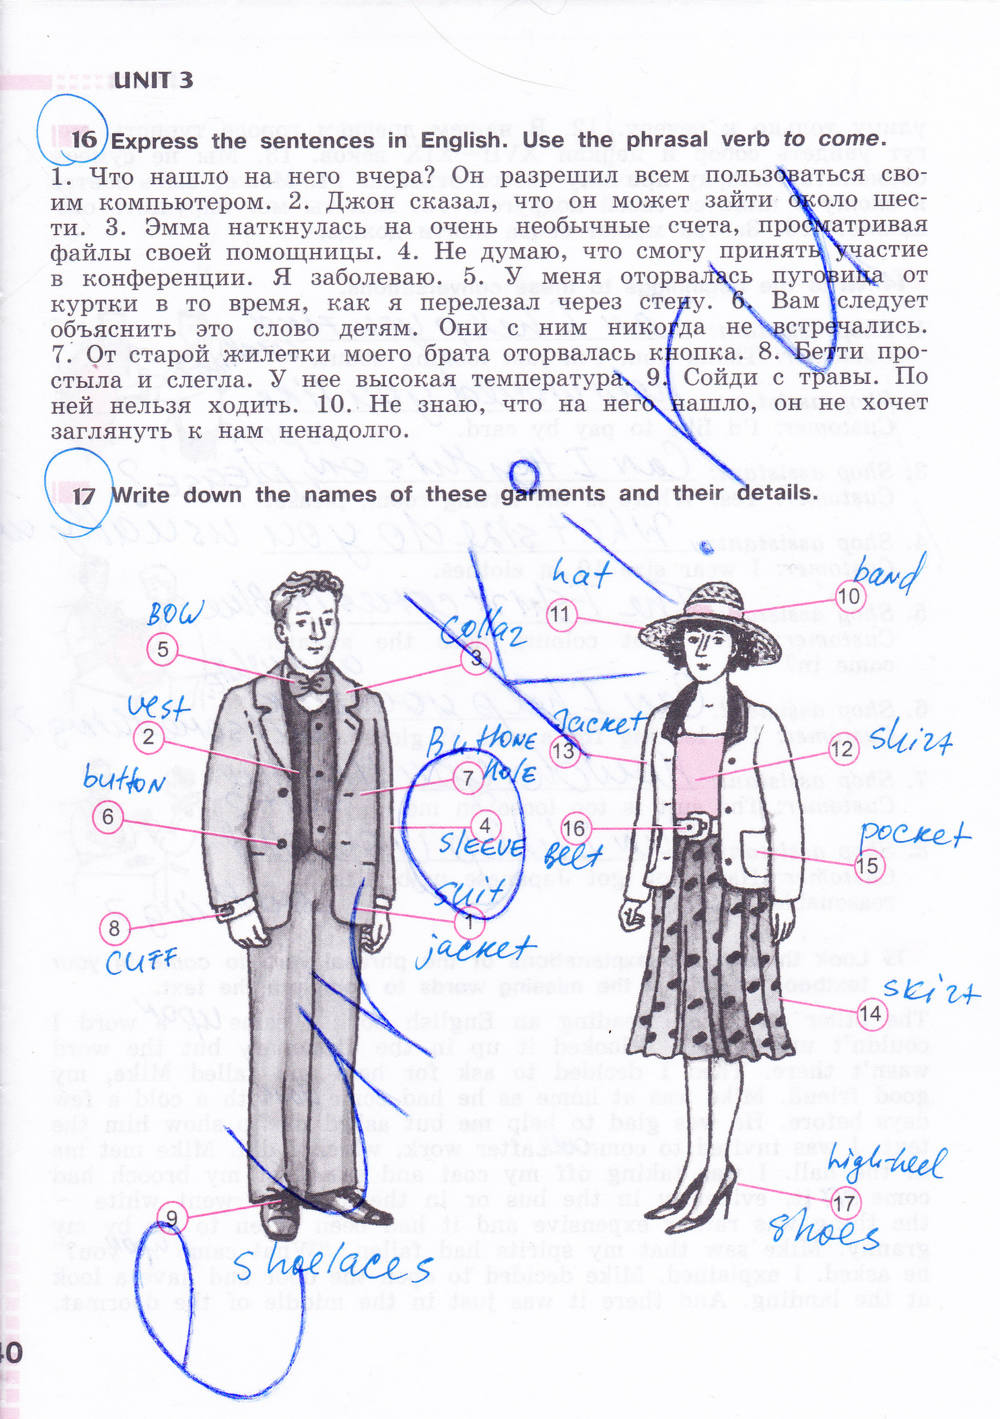 UNIT 3
16 Express the sentences in English. Use the phrasal verb to come.
1. Что нашло на него вчера? Он разрешил всем пользоваться сво-
им компьютером. 2. Джон сказал, что он может зайти около шес-
ти. 3. Эмма наткнулась на очень необычные счета, просматривая
файлы своей помощницы. 4. Не думаю, что смогу принять участие
в конференции. Я заболеваю. 5. У меня оторвалась пуговица от
куртки в то время, как я перелезал через стену. 6. Вам следует
объяснить это слово детям. Они с ним никогда не встречались.
7. От старой жилетки моего брата оторвалась кнопка. 8. Бетти про-
стыла и слегла. У нее высокая температура. 9. Сойди с травы. По
ней нельзя ходить. 10. Не знаю, что на него нашло, он не хочет
заглянуть к нам ненадолго.
17 Write down the names of these garments and their details.
hat
11
band
10
BOW
5
Collar
3
vest
2
Buttone
hole
7
Jacket
13
12
shirt
button
6
4
SLEEVE
16
Belt
pocket
15
suit
1
jacket
8
CUFF
skirt
14
high heel
17
shoes
9
shoelaces
40